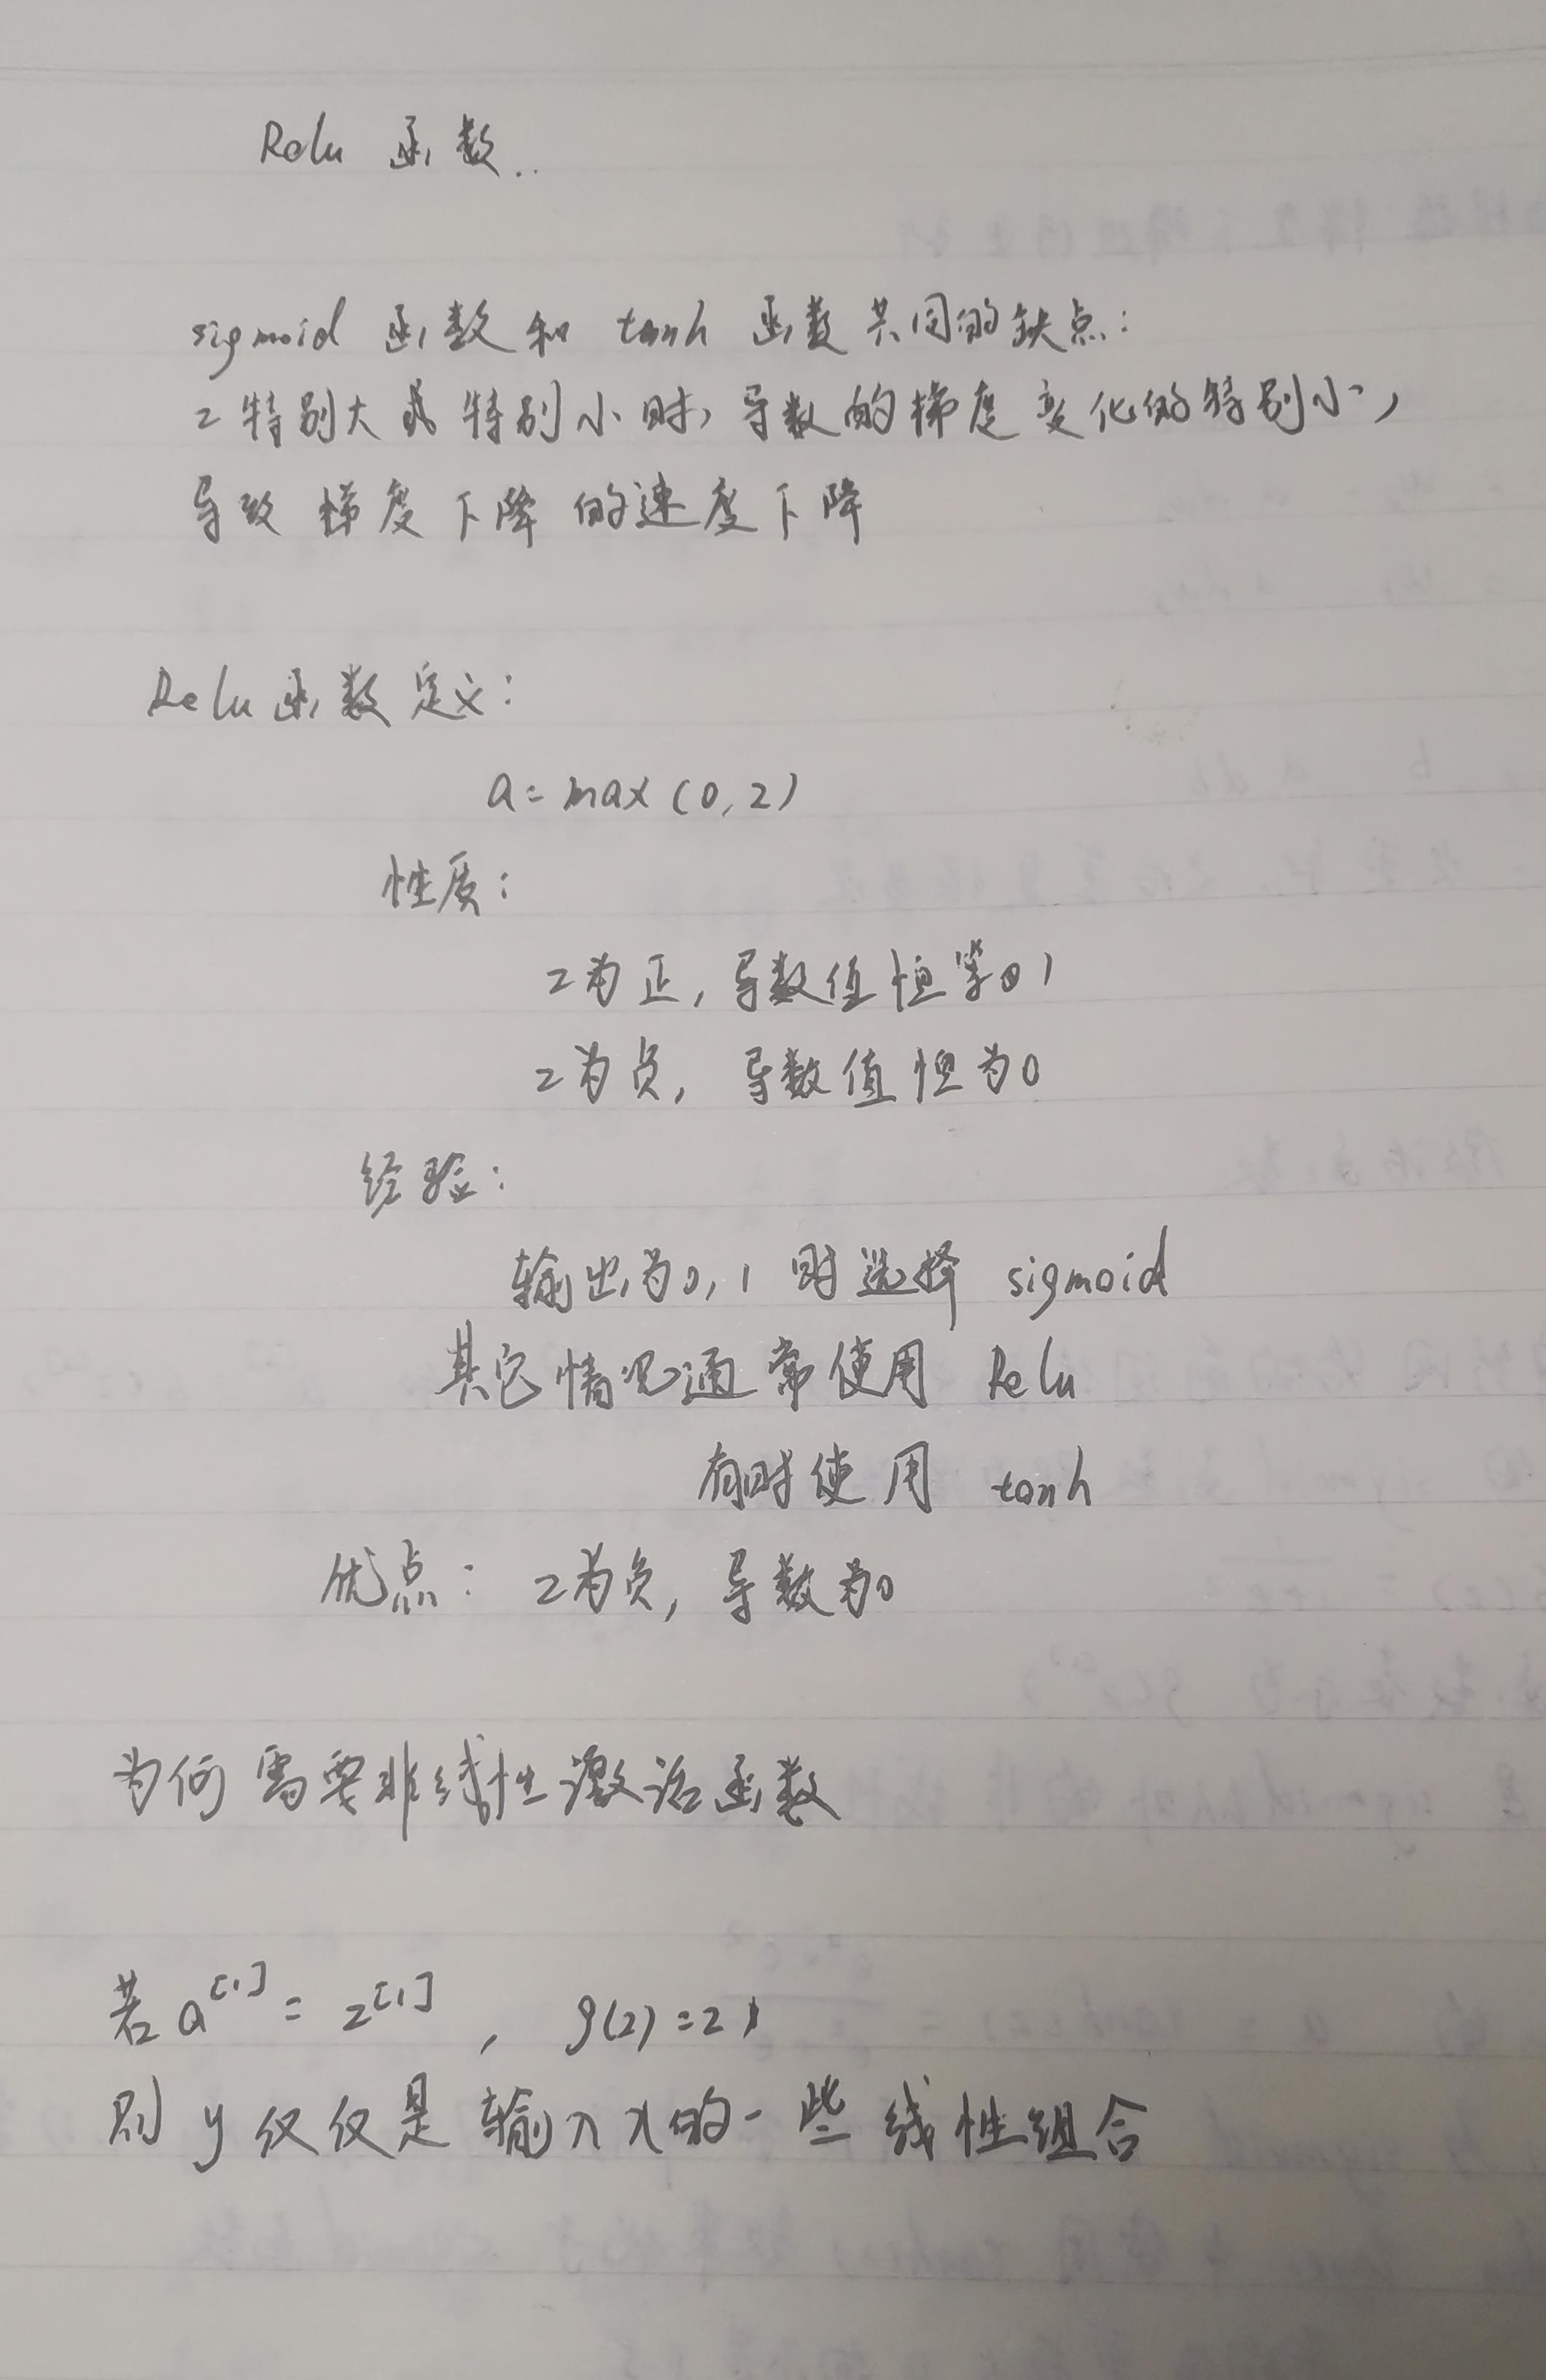 Relu 函数..
sigmoid 函数和 tanh 函数共同的缺点:
z特别大或特别小时,导数的梯度变化的特别小,
导致 梯度下降的速度下降
Relu函数定义:
a=max(0,z)
性质:
z为正,导数值恒等于1
z为负,导数值恒为0
经验:
输出为0,1时选择 sigmoid
其它情况通常使用 Relu
有时使用 tanh
优点: z为负,导数为0
为何需要非线性激活函数
若a^[1]=z^[1], g(z)=z
则y仅仅是输入x的一些线性组合